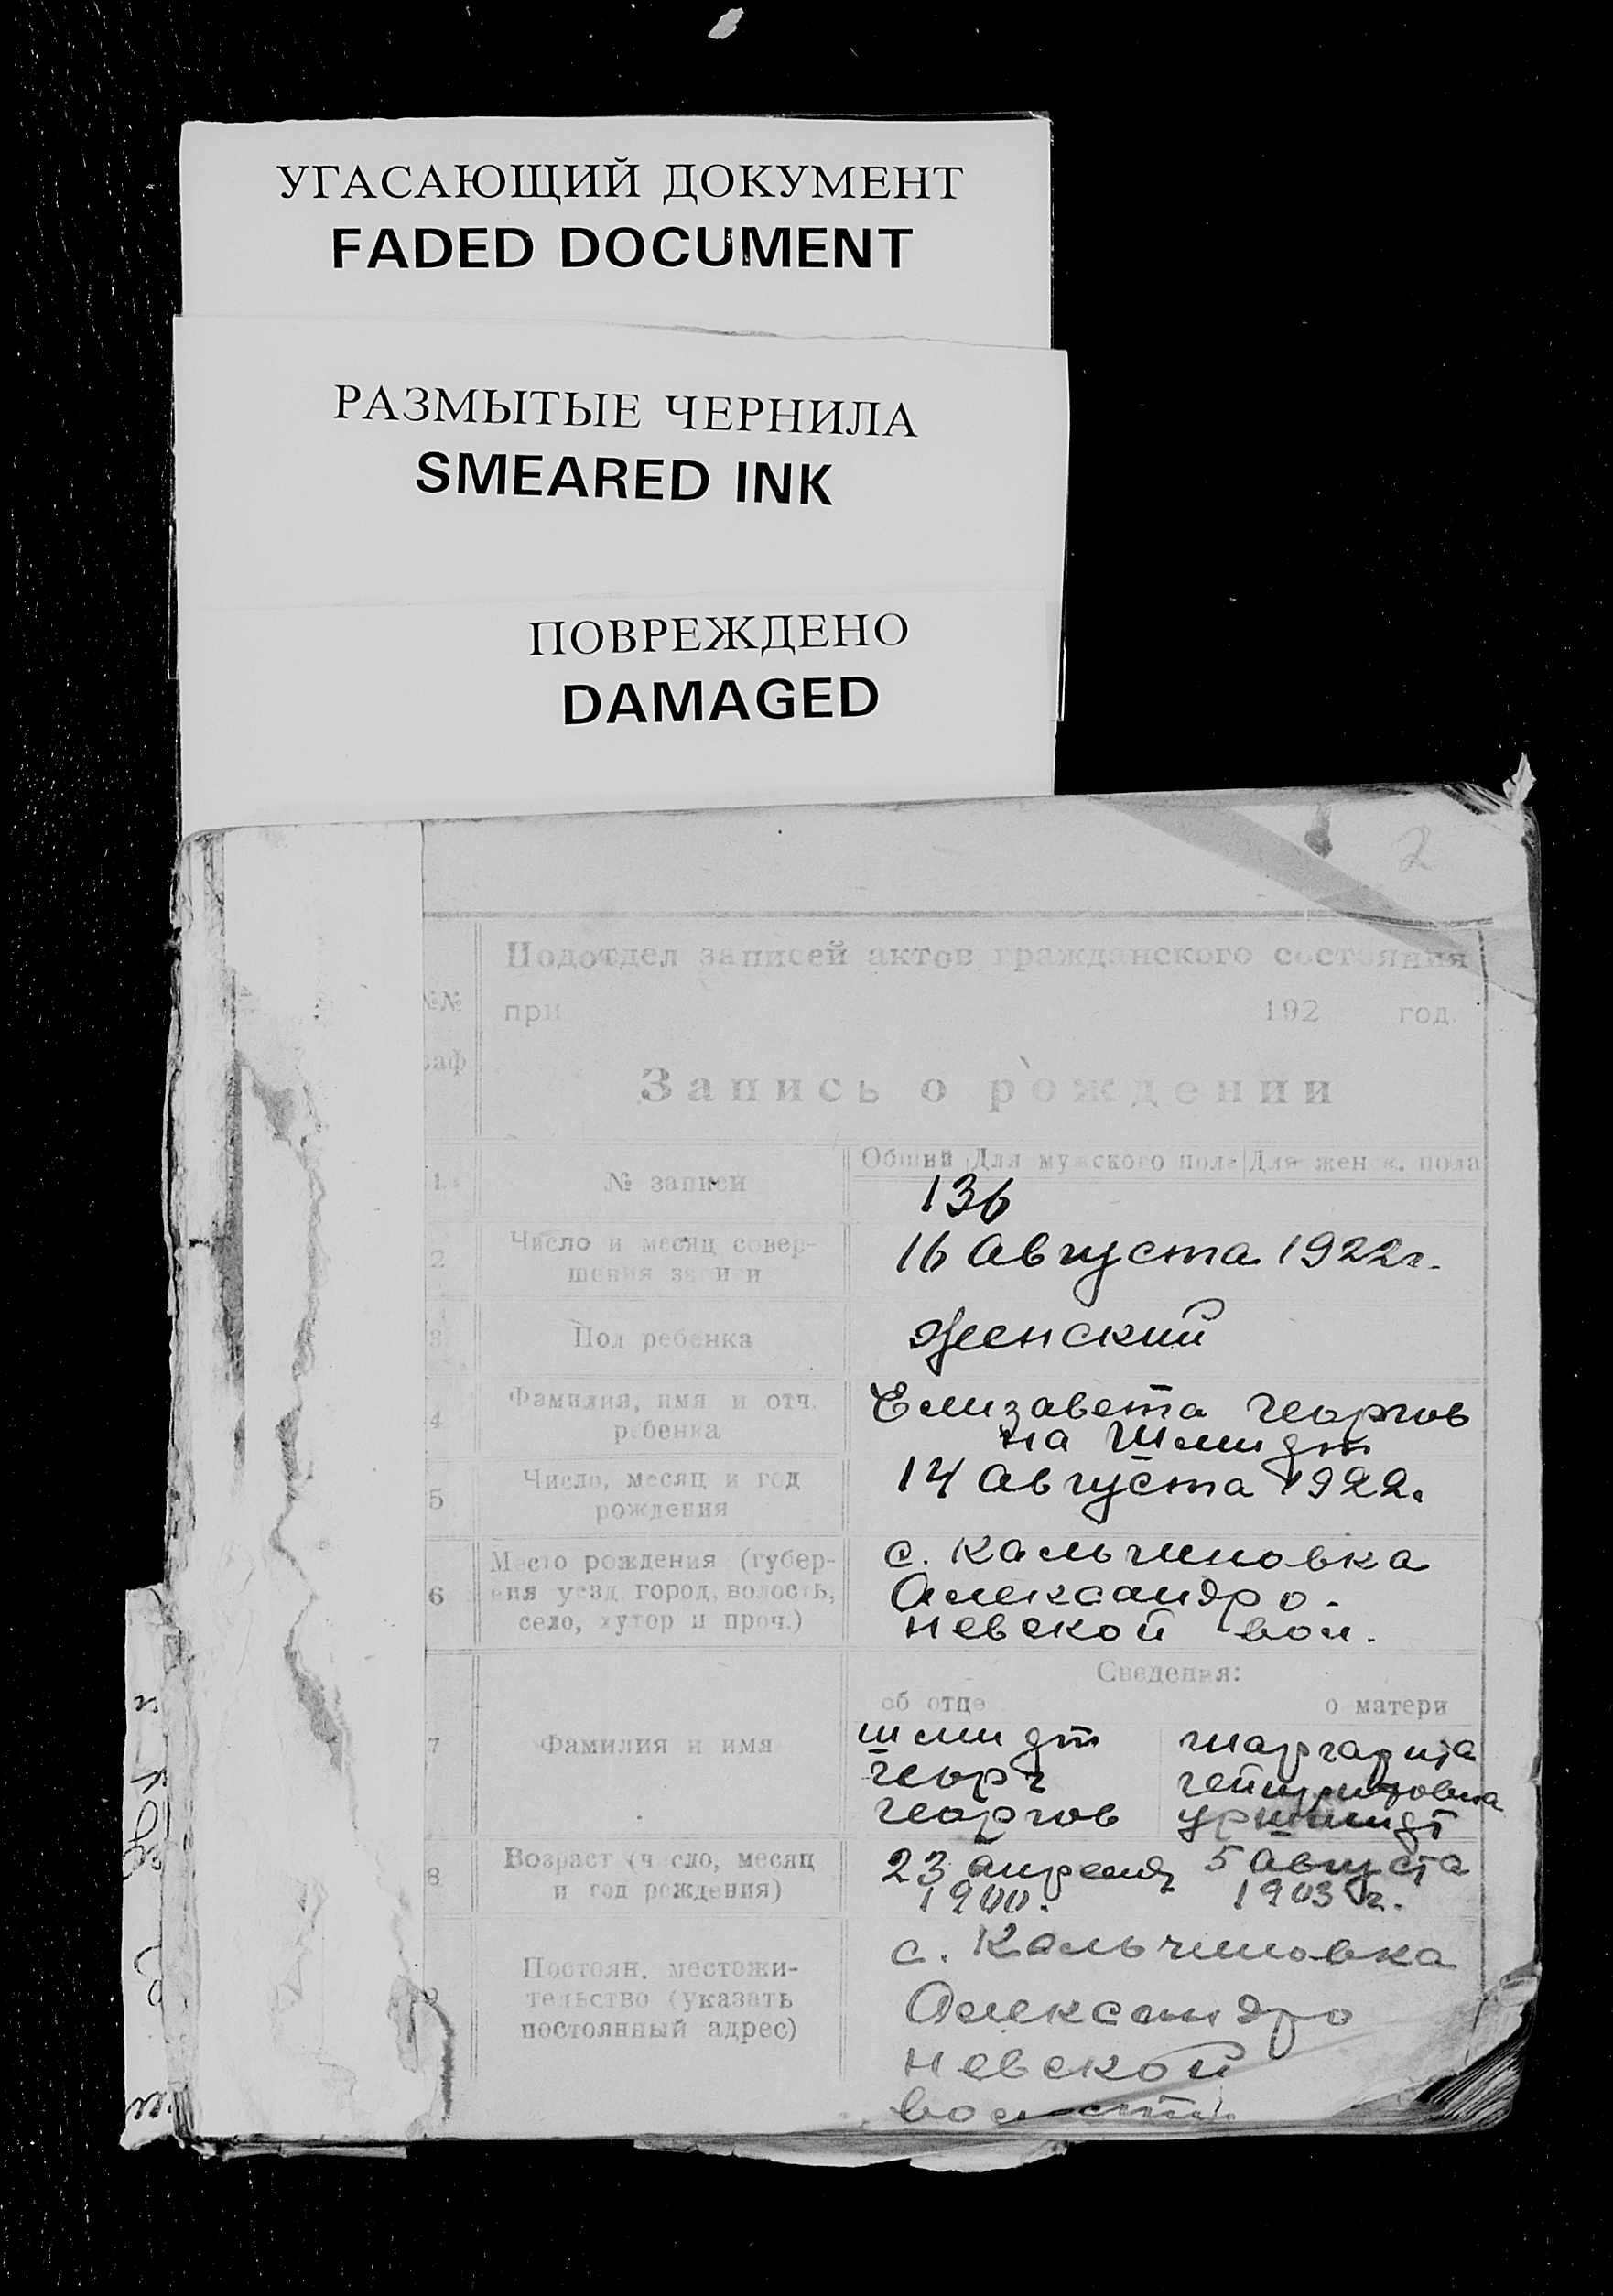 УГАСАЮЩИЙ ДОКУМЕНТ
FADED DOCUMENT
РАЗМЫТЫЕ ЧЕРНИЛА
SMEARED INK
ПОВРЕЖДЕНО
DAMAGED
2
Подотдел записей актов гражданского состояния
№№
при 192 год.
раф
Запись о рождении
Общий Для мужского пола Для женск. пола
1. № записи
136
2 Число и месяц совер-
шения записи
16 Августа 1922 г.
3 Пол ребенка
Женский
4 Фамилия, имя и отч.
ребенка
Елизавета Георгов
на Шмидт
5 Число, месяц и год
рождения
14 Августа 1922.
6 Место рождения (губер-
ния уезд город, волость,
село, хутор и проч.)
с. Кальчиновка
Александро-
Невской вол.
Сведения:
об отце о матери
7 Фамилия и имя
Шмидт
Георг
Георгов
Маргарита
8 Возраст (число, месяц
и год рождения)
23 апреля
1900.
5 Августа
1903 г.
9 Постоян. местожи-
тельство (указать
постоянный адрес)
с. Кальчиновка
Александро
Невской
волости.